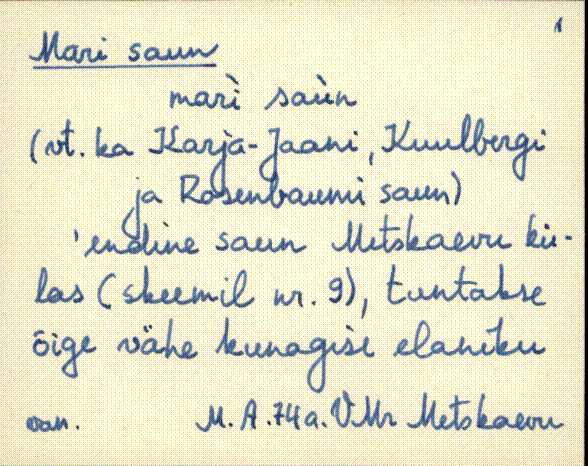 1
Mari saun
marì saùn
(vt. ka Karja-Jaani, Kuulbergi
ja Rosenbaumi saun)
'endine saun Metskaevu kü-
las (skeemil nr. 9), tuntakse
õige vähe kunagisi elanikku
van. M. A. 74 a. VMr Metskaevu